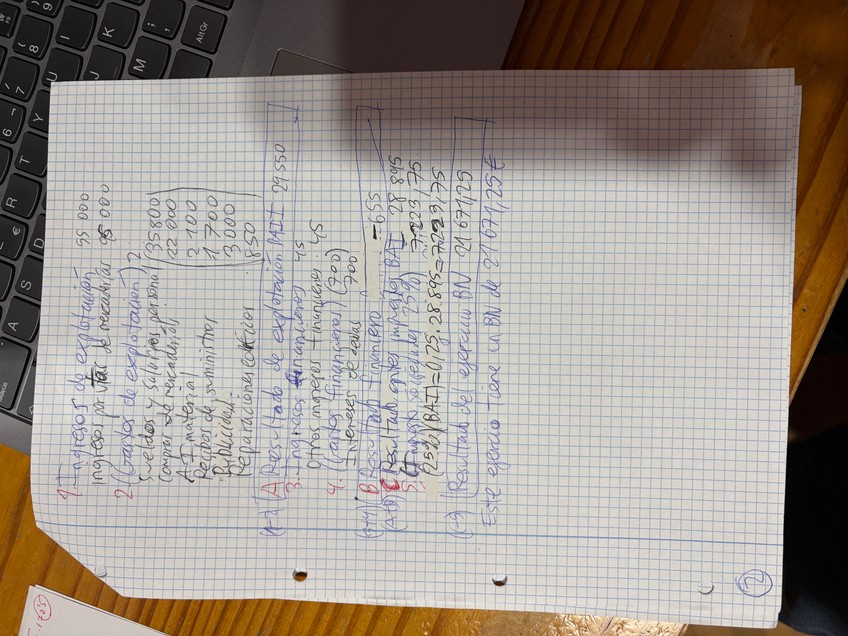 1. Ingresos de explotación 95 000
Ingresos por vtas de mercaderías 95 000
2. (Gastos de explotación) 2
Sueldos y salarios personal (35 800)
Compras de mercaderías 22 000
AT material 2 100
Recibos de suministros 1 700
Publicidad 3 000
Reparaciones 850
(1-2) A Resultado de explotación BAII 29 550
3. Ingresos financieros 45
Otros ingresos financieros: 45
4. (Gastos financieros) (700)
Intereses de 700)
(3+4) B Resultado financiero -655
(A+B) C Resultado antes impuestos BAI 28 895
5. (Impuesto sociedades 25%) 7 223,75
(25%)(BAI)=0,25·28.895=7223,75
(-5) Resultado del ejercicio BN 21 671,25
Este ejercicio tiene un BN de 21 671,25 €
2